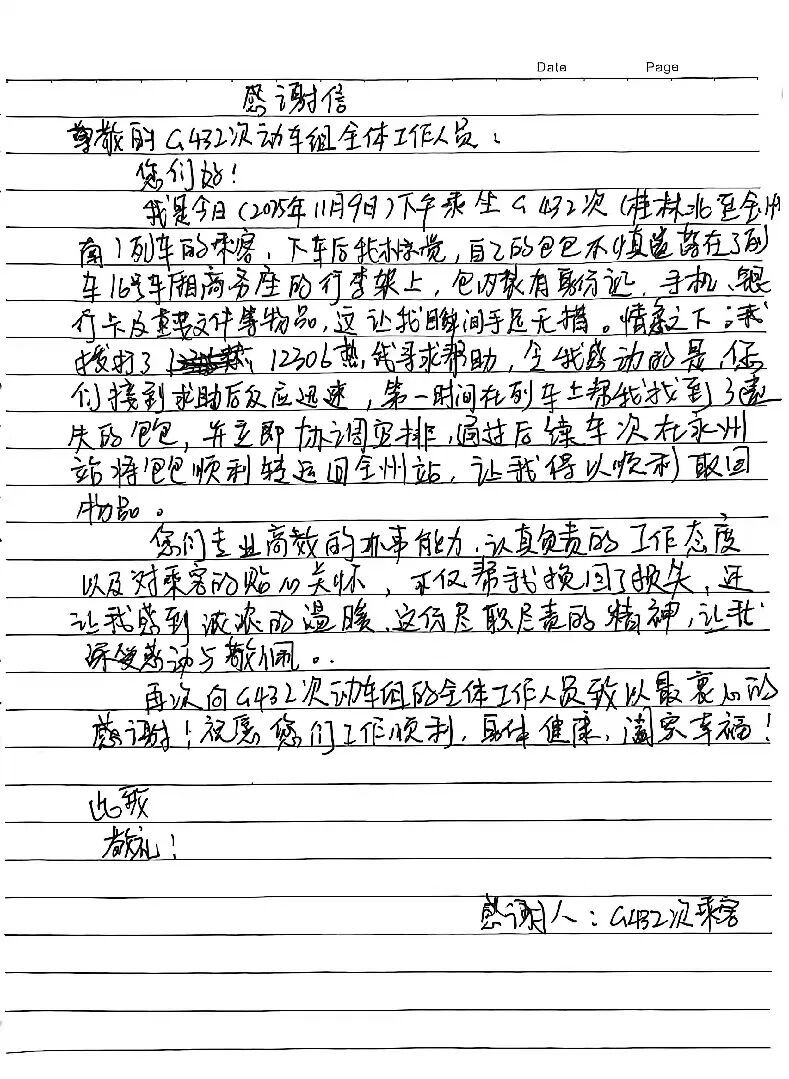 Date Page
感谢信
尊敬的G432次动车组全体工作人员：
您们好！
我是今日（2025年11月9日）下午乘坐G432次（桂林北至全州
南）列车的乘客，下车后我惊觉，自己的包包不慎遗落在了列
车16号车厢商务座的行李架上，包内装有身份证、手机、银
行卡及重要文件等物品，这让我瞬间手足无措。情急之下，我
拨打了12306热线寻求帮助，令我感动的是，你
们接到求助后反应迅速，第一时间在列车上帮我找到了遗
失的包包，并立即协调安排，通过后续车次在永州
站将包包顺利转运回全州站，让我得以顺利取回
物品。
您们专业高效的办事能力、认真负责的工作态度
以及对乘客的贴心关怀，不仅帮我挽回了损失，还
让我感到浓浓的温暖，这份尽职尽责的精神，让我
深受感动与敬佩。
再次向G432次动车组的全体工作人员致以最衷心的
感谢！祝愿您们工作顺利，身体健康，阖家幸福！
此致
敬礼！
感谢人：G432次乘客